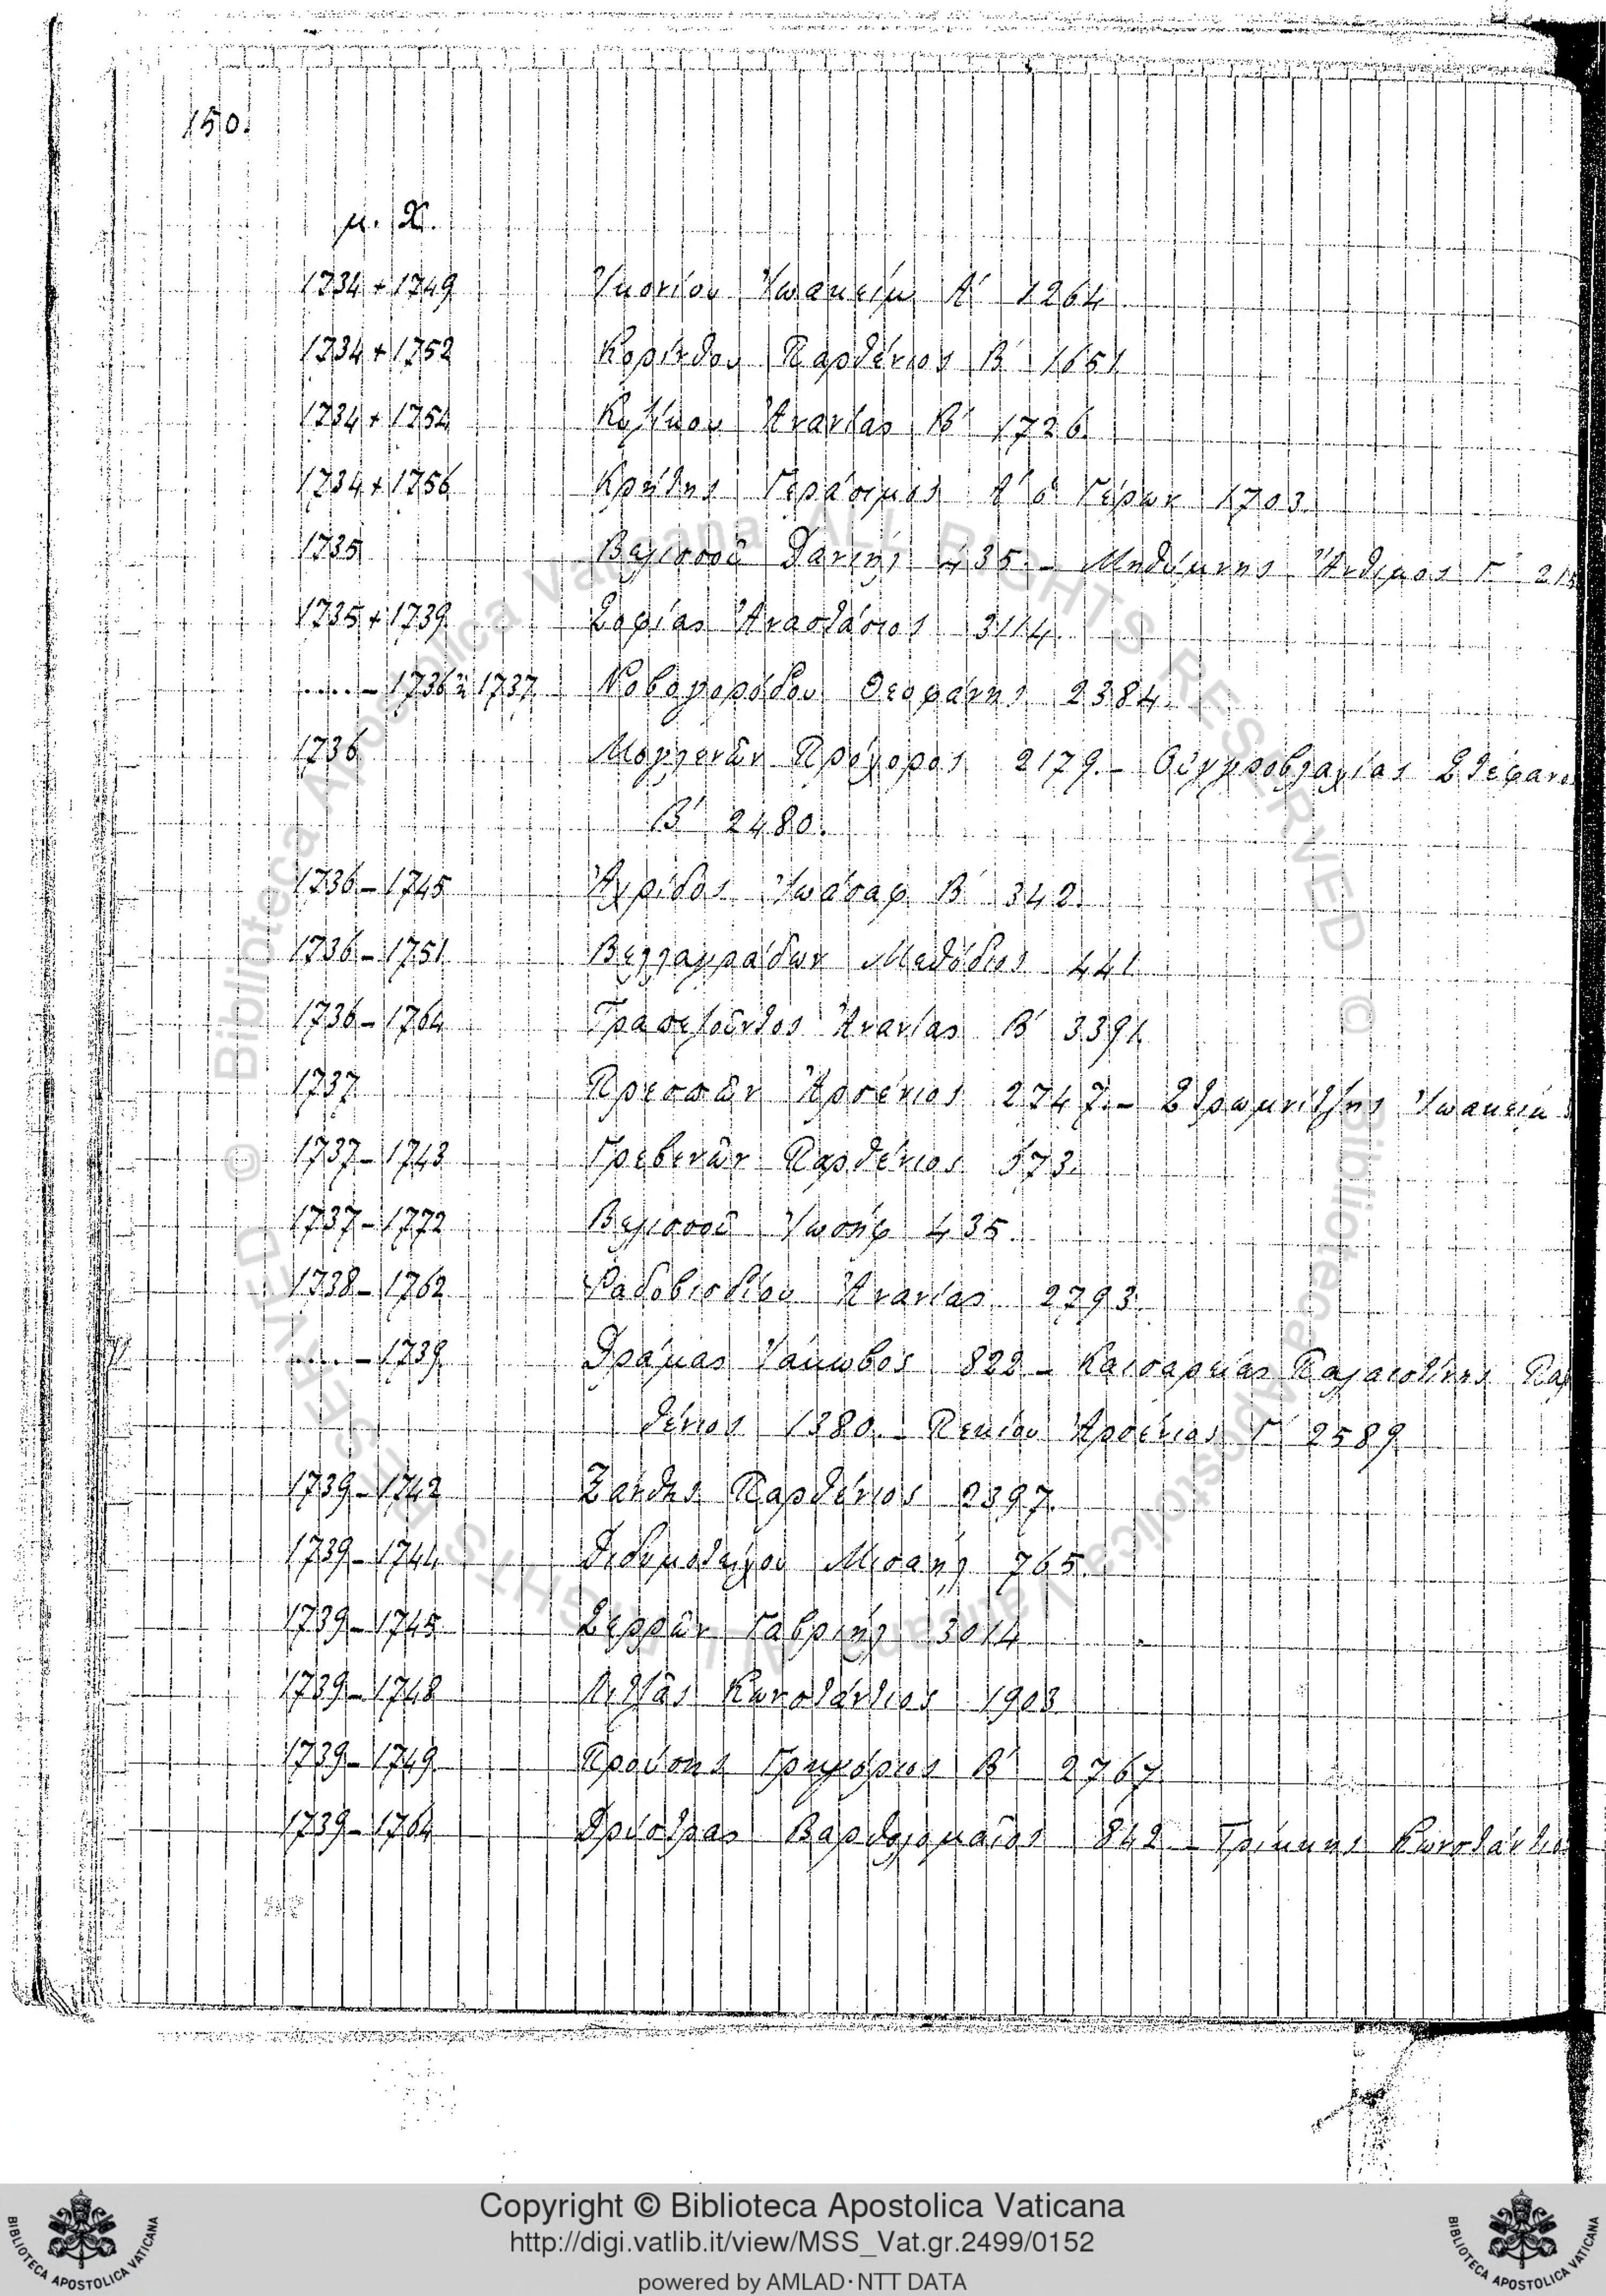 150.
μ. Χ.
1734 + 1749 Ἰκονίου Ἰωακεὶμ Α΄ 1264
1734 + 1752 Κορίνθου Παρθένιος Β΄ 1651
1734 + 1754 Κυζίκου Ἀνανίας Β΄ 1726.
1734 + 1756 Κρήτης Γεράσιμος Α΄ ὁ Γέρων 1703.
1735 Βελισσοῦ Δανιὴλ 435. – Μηθύμνης Ἄνθιμος Γ΄
1735 + 1739 Σοφίας Ἀναστάσιος 3114.
..... – 1736 ἢ 1737 Νοβογορόδου Θεοφάνης 2384.
1736 Μογλενῶν Πρόχορος 2179. – Οὑγγροβλαχίας Στέφανο
Β΄ 2480.
1736 – 1745 Ἀχρίδος Ἰωάσαφ Β΄ 342.
1736 – 1751 Βελλαγράδων Μεθόδιος 441
1736 – 1764 Τραπεζοῦντος Ἀνανίας Β΄ 3391
1737 Πρεσπῶν Ἀρσένιος 2747. – Στρωμνίτζης Ἰωακεὶμ
1737 – 1743 Γρεβενῶν Παρθένιος 573.
1737 – 1772 Βελισσοῦ Ἰωσὴφ 435.
1738 – 1762 Ῥαδοβισδίου Ἀνανίας 2793.
..... – 1739 Δράμας Ἰάκωβος 822 – Καισαρείας Παλαιστίνης Παρ
θένιος 1380. – Πεκίου Ἀρσένιος Γ΄ 2589
1739 – 1742 Ξάνθης Παρθένιος 2397.
1739 – 1744 Διδυμοτείχου Μισαὴλ 765.
1739 – 1745 Σερρῶν Γαβριὴλ 3014
1739 – 1748 Λιτζᾶς Κωνστάντιος 1903
1739 – 1749 Προύσης Γρηγόριος Β΄ 2767
1739 – 1764 Δρύστρας Βαρθολομαῖος 842 – Τρίκκης Κωνστάντιο
© Biblioteca Apostolica Vaticana ALL RIGHTS RESERVED © Biblioteca Apostolica Vaticana ALL RIGHTS RESERVED
Copyright © Biblioteca Apostolica Vaticana
http://digi.vatlib.it/view/MSS_Vat.gr.2499/0152
powered by AMLAD·NTT DATA
BIBLIOTECA APOSTOLICA VATICANA
BIBLIOTECA APOSTOLICA VATICANA